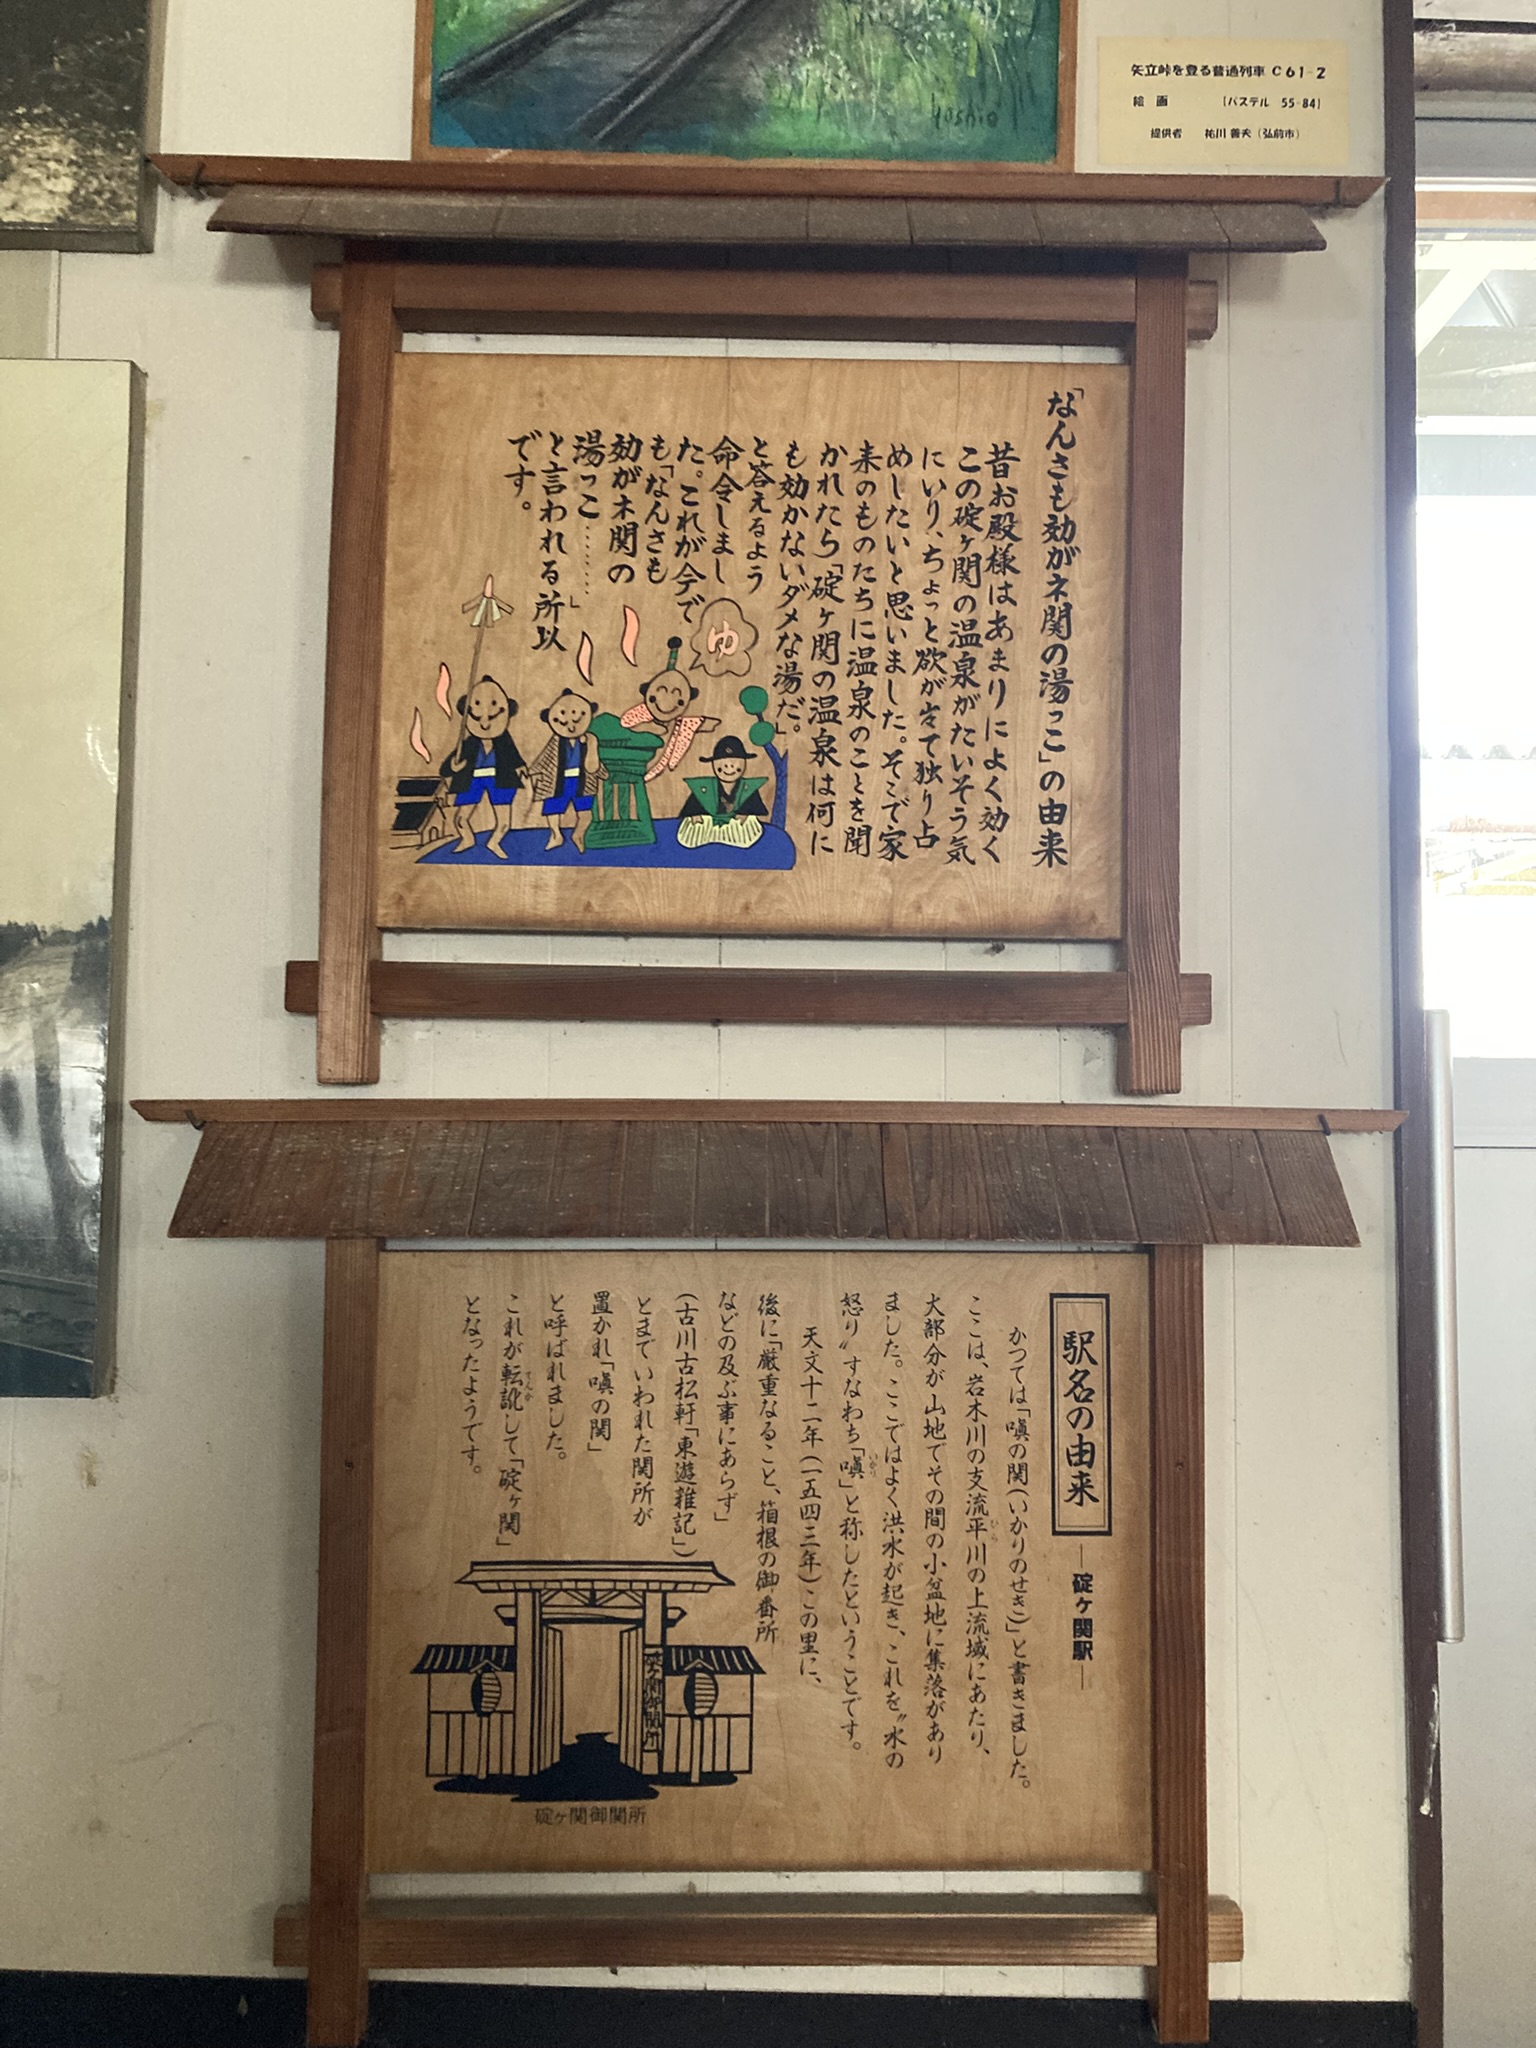 yoshio
矢立峠を登る普通列車 C61-2
絵 画 [パステル 55-84]
提供者 祐川 善夫(弘前市)
「なんさも効がネ関の湯っこ」の由来
昔お殿様はあまりによく効く
この碇ヶ関の温泉がたいそう気
にいり、ちょっと欲が出て独り占
めしたいと思いました。そこで家
来のものたちに温泉のことを聞
かれたら「碇ヶ関の温泉は何に
も効かないダメな湯だ。」
と答えるよう
命令しまし
た。これが今で
も「なんさも
効がネ関の
湯っこ……」
と言われる所以
です。
ゆ
駅名の由来 ―碇ヶ関駅―
かつては「嗔の関(いかりのせき)」と書きました。
ここは、岩木川の支流平川の上流域にあたり、
ひら
大部分が山地でその間の小盆地に集落があり
ました。ここではよく洪水が起き、これを〝水の
怒り〟すなわち「嗔」と称したということです。
いかり
天文十二年(一五四三年)この里に、
後に「厳重なること、箱根の御番所
などの及ぶ事にあらず」
(古川古松軒「東遊雑記」)
とまでいわれた関所が
置かれ「嗔の関」
と呼ばれました。
これが転訛して「碇ヶ関」
てんか
となったようです。
碇ヶ関御関所
碇ヶ関御関所